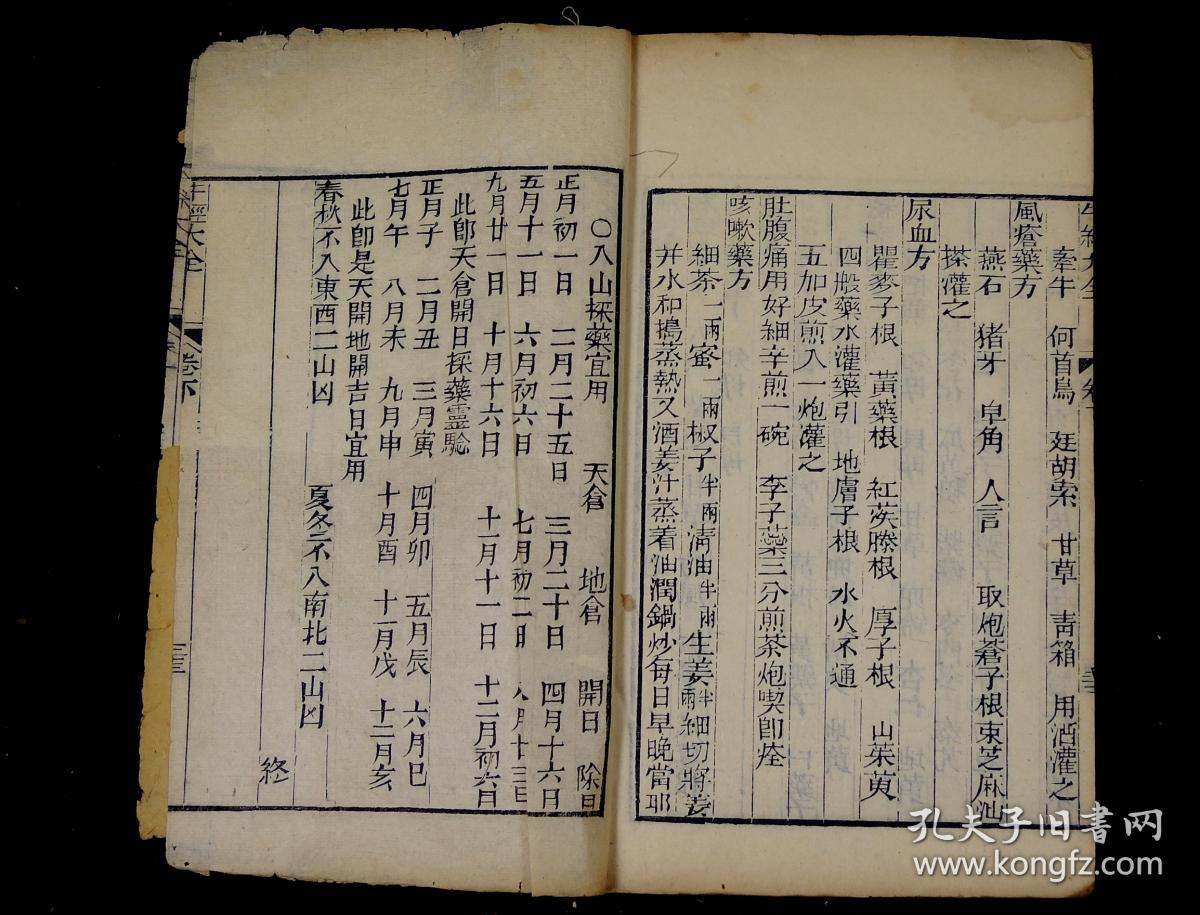 牽牛 何首烏 廷胡索 甘草 靑箱 用酒灌之
風瘡藥方
燕石 猪牙 皁角 人言 取炮蒼子根束芝麻油
搽灌之
尿血方
瞿麥子根 黃藥根 紅莢縢根 厚子根 山茱萸
四般藥水灌藥引 地膚子根 水火不通
五加皮煎入一炮灌之
肚腹痛用好細辛煎一碗 李子藥三分煎茶炮喫即痊
咳嗽藥方
細茶一兩蜜一兩椒子半兩淸油半兩生姜半兩細切將姜
幷水和搗蒸熱又酒姜汁蒸着油潤鍋炒每日早晚當耶
○入山採藥宜用 天倉 地倉 開日 除日
正月初一日 二月二十五日 三月二十日 四月十六日
五月十一日 六月初六日 七月初二日 八月十三日
九月廿一日 十月十六日 十一月十一日 十二月初六月
此卽天倉開日採藥靈騐
正月子 二月丑 三月寅 四月卯 五月辰 六月巳
七月午 八月未 九月申 十月酉 十一月戊 十二月亥
此卽是天開地開吉日宜用
春秋不入東西二山凶 夏冬不八南北二山凶
終
牛經大全 卷下
孔夫子旧書网
www.kongfz.com